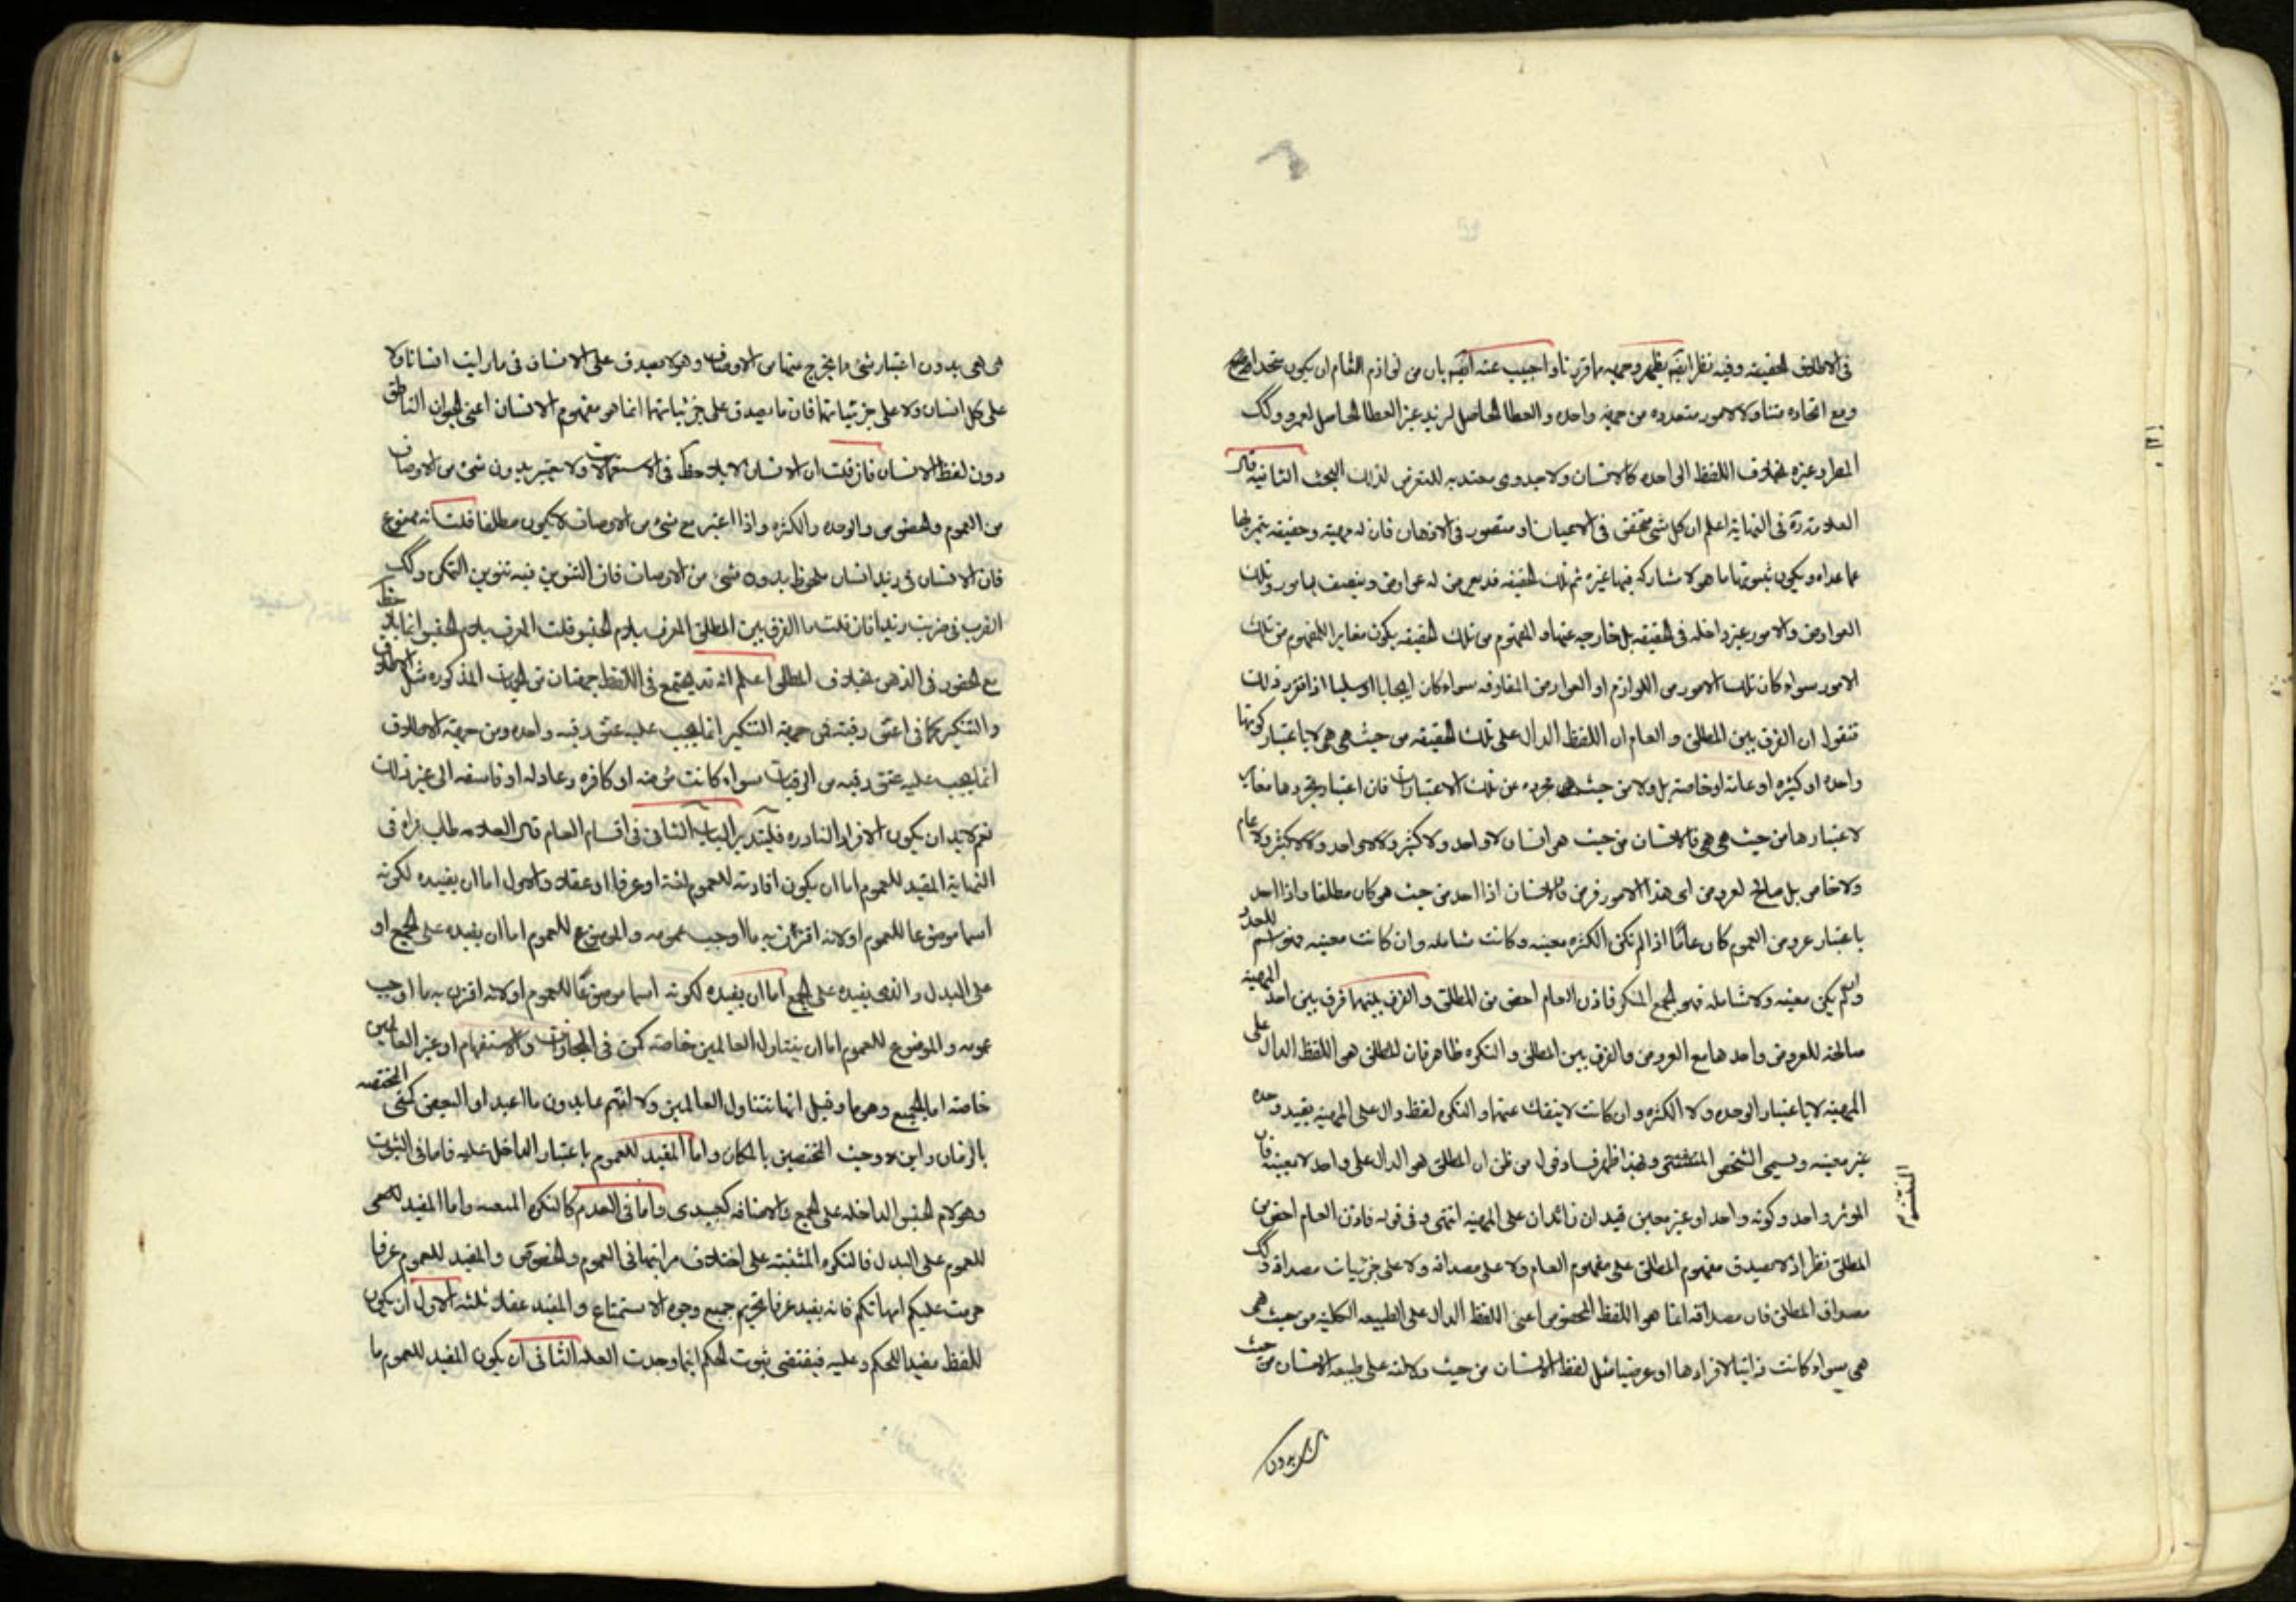 فى الاطلاق الحقيقه وفيه نظر ايضا يظهر وجهه مما قررناه واجيب عنه ايضا بان من لوازم العام ان يكون متحدا
ومع اتحاده متناولا لامور متعدده من جهة واحده والعطا الحاصل لزيد غير العطا الحاصل لعمرو وكك
المطر وغيره بخلاف اللفظ الواحد كالانسان ولا جدوى معتد به للتعرض لذلك البحث الثانيه قال
العلامة ره فى النهاية اعلم ان كل شئ متحقق فى الاعيان او متصور فى الاذهان فان له مهية وحقيقه يتميز بها
عما عداه ويكون بثبوتها ما هو لا يشاركه فيها غيره ثم تلك الحقيقه قد يعرض له عوارض ويتصف بامور وتلك
العوارض والامور غير داخله فى الحقيقه بل خارجيه عنها والمفهوم من تلك الحقيقه يكون مغايرا للمفهوم من تلك
الامور سواء كان تلك الامور من اللوازم او العوارض المفارقه سواء كان ايجابا او سلبا اذا تقرر ذلك
فنقول ان الفرق بين المطلق و العام ان اللفظ الدال على تلك الحقيقه من حيث هى هى لا باعتبار كونها
واحده او كثيره او عامة او خاصة بل ولا من حيث هى مجرده عن تلك الاعتبارات فان اعتبار تجردها مغاير
لاعتبارها من حيث هى هى فالانسان من حيث هو انسان لا واحد ولا كثير ولا لا واحد ولا لا كثير ولا عام
ولا خاص بل صالح لعروض اى هذه الامور فرض فالانسان اذا اخذ من حيث هو كان مطلقا واذا اخذ
باعتبار عروض العموم كان عامّا اذا لم تكن الكثره معينه وكانت شامله وان كانت معينه فهو اسم للعدد
وان لم يكن معينه ولا شامله فهو الجمع المنكر فاذن العام اخص من المطلق والفرق بينهما فرق بين اخذ المهية
صالحة للعروض واخذها مع العروض والفرق بين المطلق و النكره ظاهر فان المطلق هو اللفظ الدال على
المهية لا باعتبار الوحده ولا الكثره وان كانت لا ينفك عنها و النكره لفظ دال على المهية بقيد وحده
غير معينه ويسمى الشخص المنتشر وبهذا ظهر فساد قول من ظن ان المطلق هو الدال على واحد لا بعينه فان
الموثر واحد وكونه واحدا او غير معين قيدان زائدان على المهية انتهى وفى قوله فاذن العام اخص من
المطلق نظر اذ لا يصدق مفهوم المطلق على مفهوم العام ولا على مصداقه ولا على جزئيات مصداقه وكك
مصداق المطلق فان مصداقه انما هو اللفظ المخصوص اعنى اللفظ الدال على الطبيعه الكلية من حيث هى
هى سواء كانت ذاتيا لافرادها او عرضيا مثل لفظ الانسان من حيث دلالته على طبيعه الانسان من حيث
هى هى بدون اعتبار شئ ما يخرج عنها من الاوصاف وهو لا يصدق على الانسان فى ما رايت انسانا ولا
على كل انسان ولا على جزئياتهما فان ما يصدق على جزئياتهما انما هو مفهوم الانسان اعنى الحيوان الناطق
دون لفظ الانسان فان قلت ان الانسان لا يلاحظ فى الاستعمالات ولا يعتبر بدون شئ من الاوصاف
من العموم والخصوص والوحده والكثره واذا اعتبر مع شئ من الاوصاف لا يكون مطلقا قلت انه ممنوع
فان الانسان فى زيد انسان ملحوظ بدون شئ من الاوصاف فان التنوين فيه تنوين التمكن وكك
الضرب فى ضربت زيدا فان قلت ما الفرق بين المطلق والمعرف بلام الجنس قلت المعرف بلام الجنس انما يلاحظ
مع الحضور فى الذهن بخلاف المطلق اعلم انه قد يجتمع فى اللفظ جهتان من الجهات المذكوره مثل الاطلاق
والتنكير كما فى اعتق رقبة فمن جهة التنكير انما يجب عليه عتق رقبه واحده ومن جهة الاطلاق
انما يجب عليه عتق رقبه من الرقبات سواء كانت مؤمنه او كافره وعادله او فاسقه الى غير ذلك
نعم لابد ان يكون الافراد النادره فليتدبر الباب الثانى فى اقسام العام قال العلامه طاب ثراه فى
النهاية المفيد للعموم اما ان يكون افادته للعموم لغة او عرفا او عقلا والاول اما ان يفيده لكونه
اسما موضوعا للعموم او لانه اقترن به ما اوجب عمومه والموضوع للعموم اما ان يفيده على الجمع او
على البدل والذى يفيده على الجمع اما ان يفيده لكونه اسما موضوعا للعموم او لانه اقترن به ما اوجب
عمومه والموضوع للعموم اما ان يتناول العالمين خاصة كمن فى المجازات والاستفهام او غير العالمين
خاصة اما الجميع وهو ما وقيل انها تتناول العالمين ولا انتم عابدون ما اعبد او البعض كمتى المختصه
بالزمان واين وحيث المختصين بالمكان واما المفيد للعموم باعتبار الداخل عليه فاما فى الثبوت
وهو لام الجنس الداخله على الجمع والاضافه كعبيدى واما فى العدم كالنكره المنفيه واما المفيد
للعموم على البدل فالنكره المثبته على اختلاف مراتبها فى العموم والخصوص والمفيد للعموم عرفا
حرمت عليكم امهاتكم فانه يفيد عرفا تحريم جميع وجوه الاستمتاع والمفيد عقلا ثلثه الاول ان يكون
اللفظ مفيدا للحكم وعليه فيقتضى ثبوت الحكم اينما وجدت العله الثانى ان يكون المفيد للعموم ما